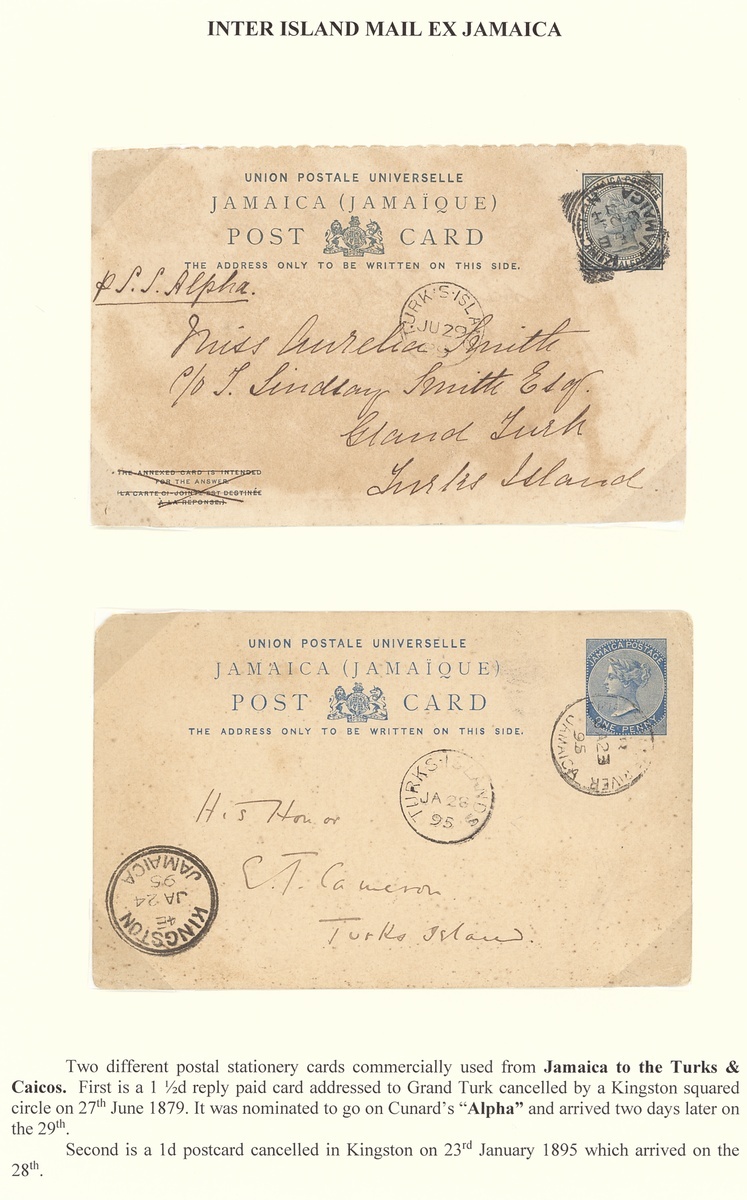 INTER ISLAND MAIL EX JAMAICA
UNION POSTALE UNIVERSELLE
JAMAICA (JAMAÏQUE)
POST CARD
THE ADDRESS ONLY TO BE WRITTEN ON THIS SIDE.
JAMAICA
p S.S. Alpha.
TURK'S-ISLAND
JU 29
Miss Aurelia Smith
c/o T. Lindsay Smith Esq.
Grand Turk
Turks Island.
THE ANNEXED CARD IS INTENDED
FOR THE ANSWER.
LA CARTE CI-JOINTE EST DESTINÉE
À LA RÉPONSE.
UNION POSTALE UNIVERSELLE
JAMAICA (JAMAÏQUE)
POST CARD
THE ADDRESS ONLY TO BE WRITTEN ON THIS SIDE.
JAMAICA POSTAGE
ONE PENNY
RIVER
JA 23
95
JAMAICA
TURKS-ISLANDS
JA 28
95
His Honor
E. J. Cameron
Turks Island.
KINGSTON
4E
JA 24
95
JAMAICA
Two different postal stationery cards commercially used from Jamaica to the Turks &
Caicos. First is a 1 ½d reply paid card addressed to Grand Turk cancelled by a Kingston squared
circle on 27th June 1879. It was nominated to go on Cunard's “Alpha” and arrived two days later on
the 29th.
Second is a 1d postcard cancelled in Kingston on 23rd January 1895 which arrived on the
28th.